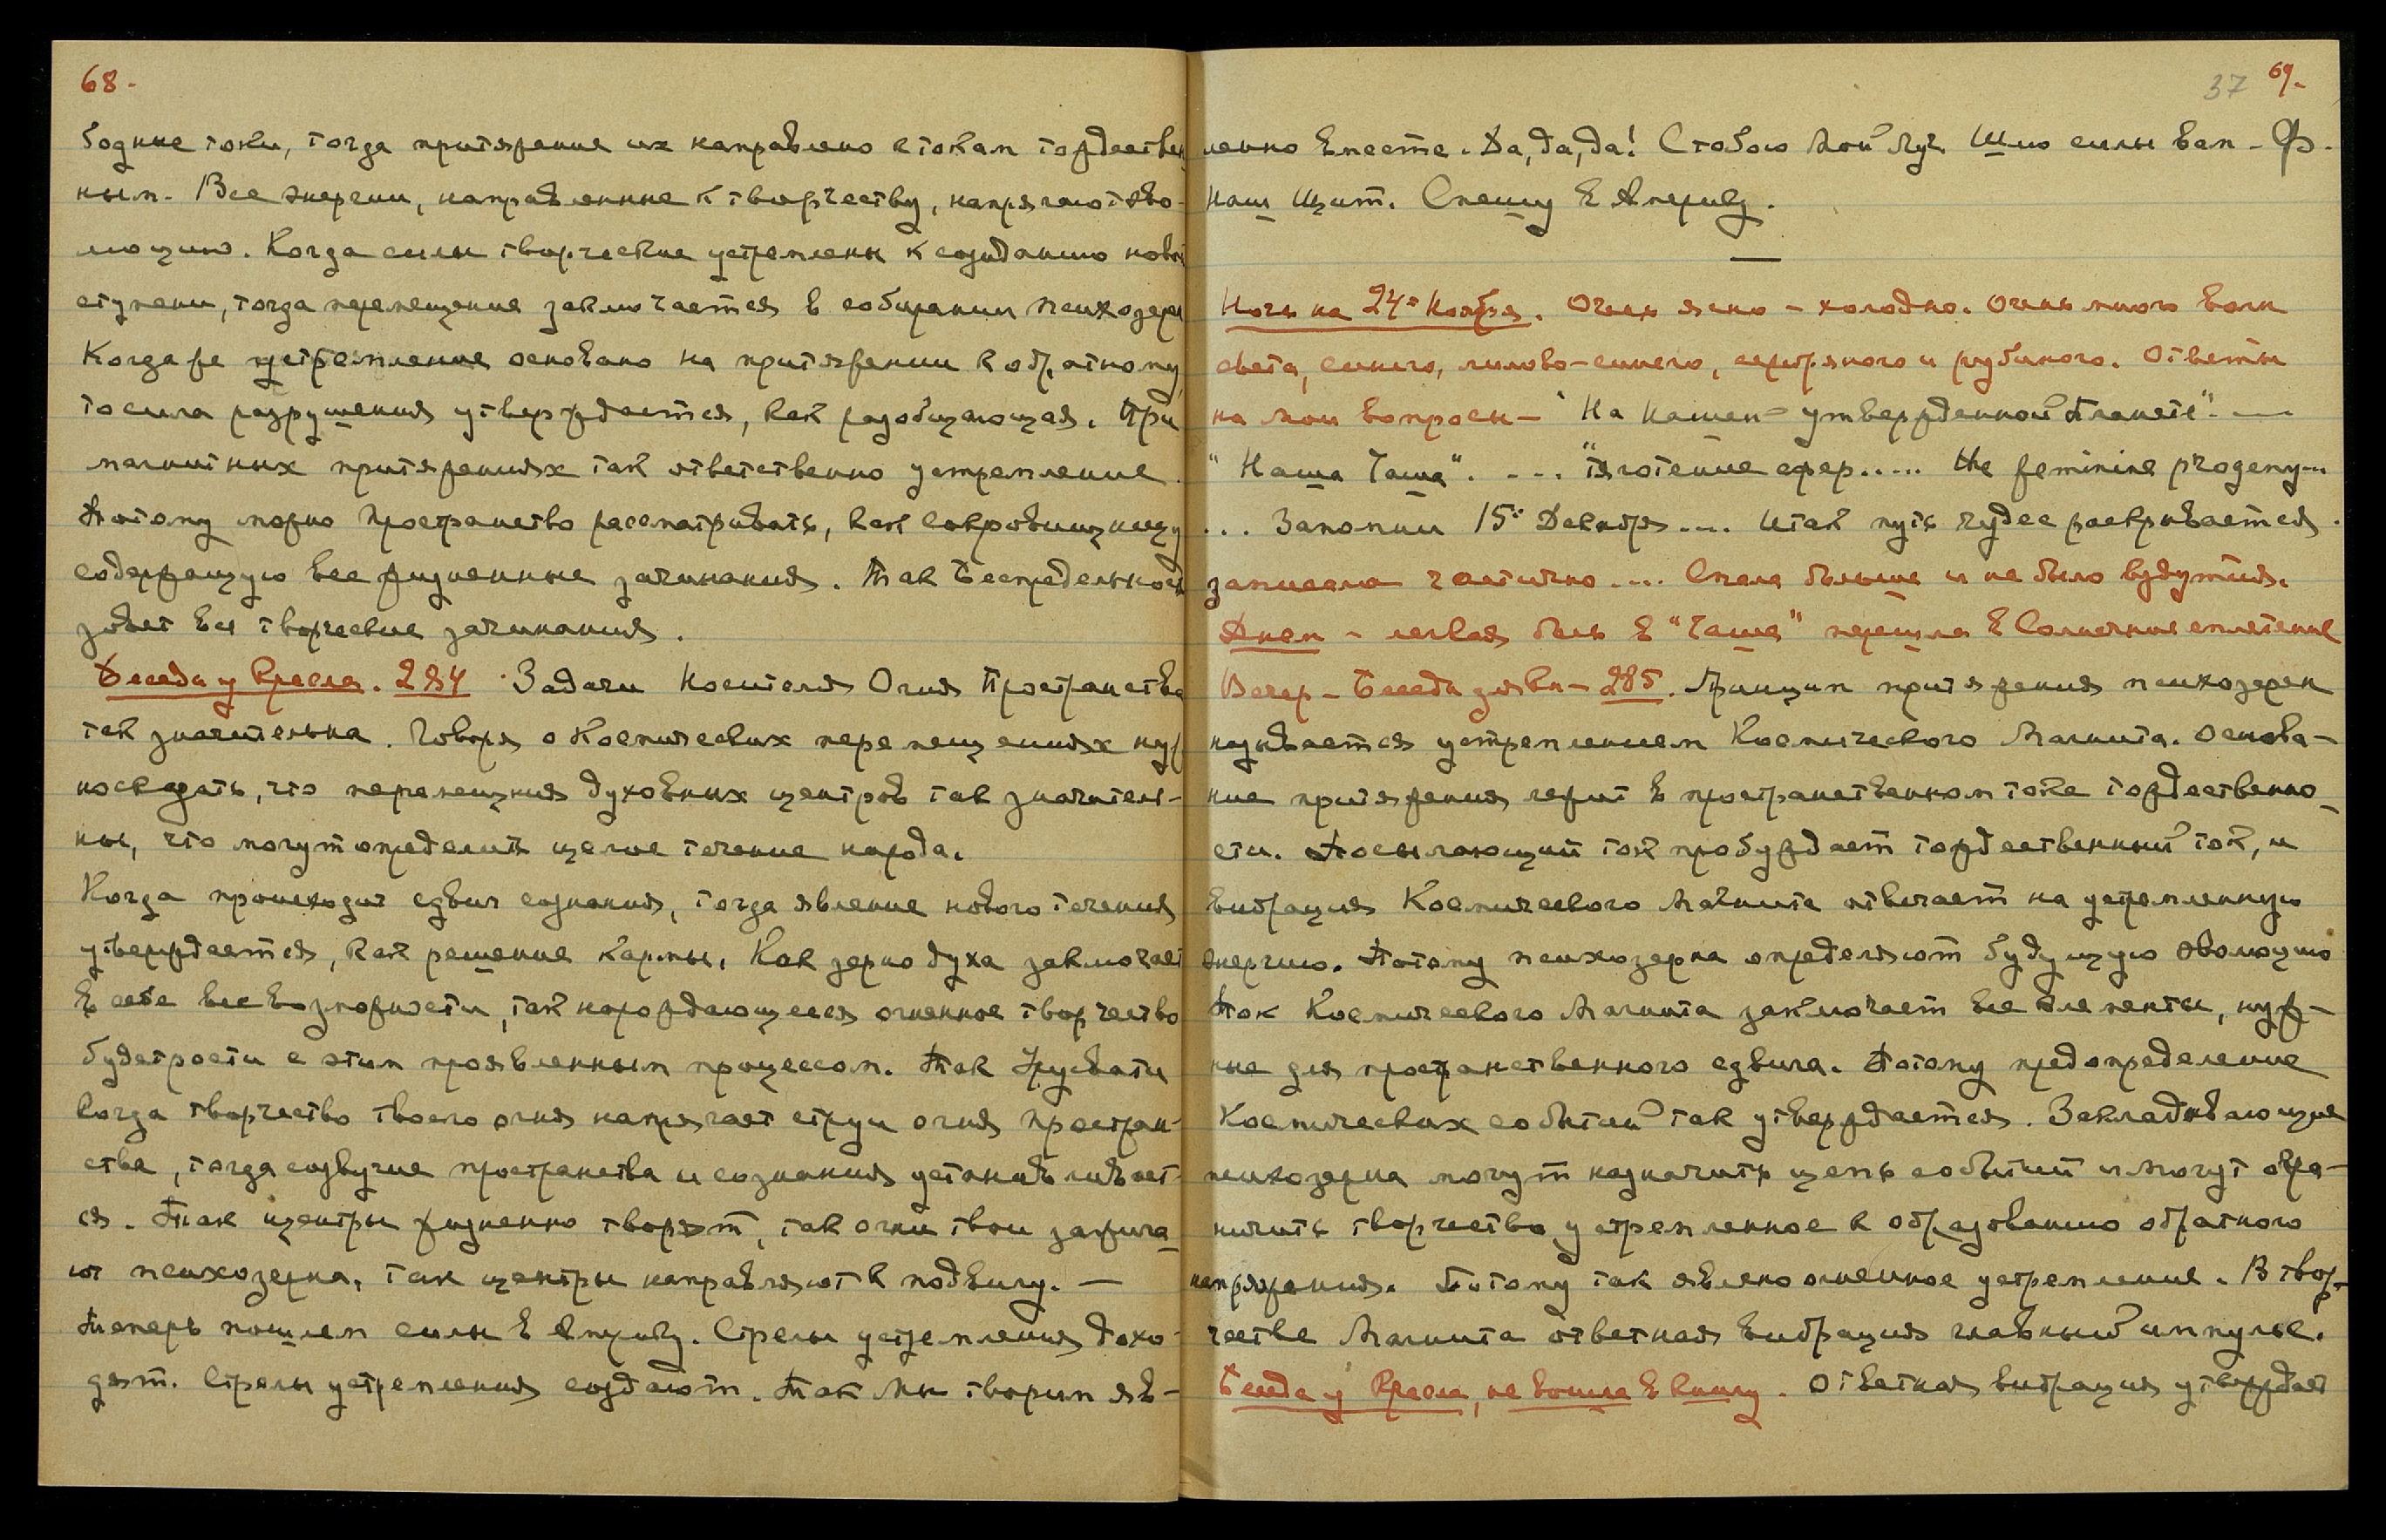 68.
бодные токи, тогда притяжение их направлено к токам тождествен
ным. Все энергии, направленные к творчеству, напрягают эво-
люцию. Когда силы творческие устремлены к созиданию новой
ступени, тогда перемещение заключается в собирании психозерен
Когда же устремление основано на притяжении к обратному,
то сила разрушения утверждается, как разобщающая. При
магнитных притяжениях так ответственно устремление.
Потому можно пространство рассматривать, как сокровищницу
содержащую все жизненные зачинания. Так Беспредельность
зовет все творческие зачинания.
Беседа у Кресла. 284 Задачи Носителя Огня Пространства
так значительна. Говоря о Космических перемещениях нуж
но сказать, что перемещения духовных центров так значитель-
ны, что могут определить целое течение народа.
Когда происходит сдвиг сознания, тогда явление нового течения
утверждается, как решение кармы. Как зерно духа заключает
в себе все возможности, так нарождающееся огненное творчество
будет расти с этим проявленным процессом. Так Урусвати
когда творчество твоего огня напрягает струи огня простран-
ства, тогда созвучие пространства и сознания устанавливает-
ся. Так центры жизненно творят, так огни твои зажига-
ют психозерна, так центры направляют к подвигу. —
Теперь пошлем силы в Америку. Стрелы устремления дохо-
дят. Стрелы устремления создают. Так Мы творим яв-
37 69.
ленно вместе. Да, да, да! С тобою Мой Луч. Шлю силы вам - Ф.
Наш Щит. Спешу в Америку.
Ночь на 24е Ноября. Очень ясно - холодно. Очень много волн
света, синего, лилово-синего, серебряного и рубиного. Ответы
на мои вопросы - "На Нашей = утвержденной Планете". —
"Наша Чаша". .... "Тяготение сфер..... the feminine progeny...
... Запомни 15е Декабря.... Итак путь чудес раскрывается.
записала частично.... Спала больше и не было вздутия.
Днем - легкая боль в "Чаше" перешла в Солнечное сплетение
Вечер - Беседа для кн - 285. Принцип притяжения психозерен
называется устремлением Космического Магнита. Основа-
ние притяжения лежит в пространственном токе тождественно-
сти. Посылающий ток пробуждает тождественный ток, и
вибрация Космического Магнита отвечает на устремленную
энергию. Потому психозерна определяют будущую эволюцию
Ток Космического Магнита заключает все элементы, нуж-
ные для пространственного сдвига. Потому предопределение
Космических событий так утверждается. Закладывающие
психозерна могут назначить цепь событий и могут огра-
ничить творчество устремленное к образованию обратного
напряжения. Потому так явлено огненное устремление. В твор-
честве Магнита ответная вибрация главный импульс.
Беседа у Кресла, не вошла в книгу. Ответная вибрация утверждает